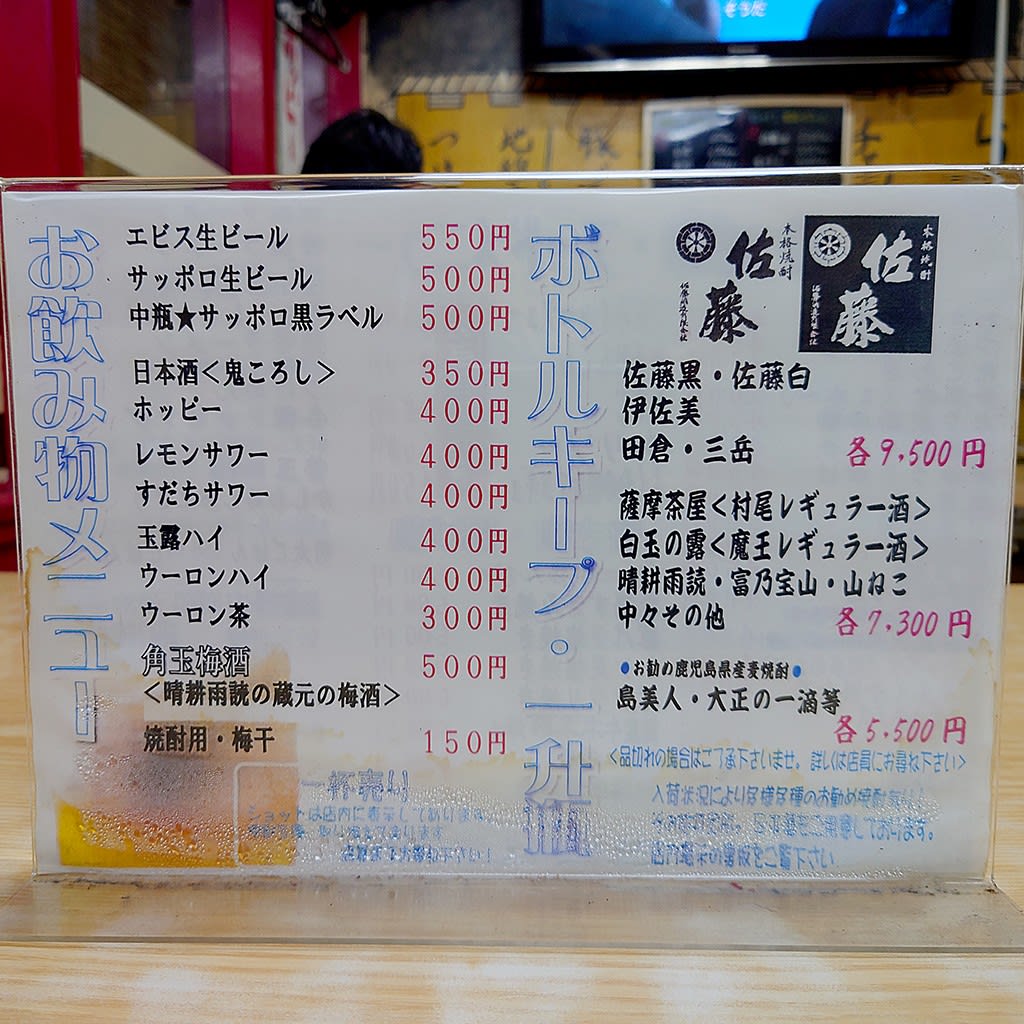 そうだ
お飲み物メニュー
エビス生ビール 550円
サッポロ生ビール 500円
中瓶★サッポロ黒ラベル 500円
日本酒<鬼ころし> 350円
ホッピー 400円
レモンサワー 400円
すだちサワー 400円
玉露ハイ 400円
ウーロンハイ 400円
ウーロン茶 300円
角玉梅酒 500円
<晴耕雨読の蔵元の梅酒>
焼酎用・梅干 150円
一杯売り
ショットは店内に表示してあります。
ボトルキープ・一升瓶
本格焼酎
佐藤
佐藤酒造有限会社
本格焼酎
佐藤
佐藤酒造有限会社
佐藤黒・佐藤白
伊佐美
田倉・三岳 各9,500円
薩摩茶屋<村尾レギュラー酒>
白玉の露<魔王レギュラー酒>
晴耕雨読・富乃宝山・山ねこ
中々その他 各7,300円
●お勧め鹿児島県産麦焼酎●
島美人・大正の一滴等
各5,500円
<品切れの場合はご了承下さいませ。詳しくは店員にお尋ね下さい>
入荷状況により各種各種のお勧め焼酎有り!
をご用意しております。
をご覧下さい